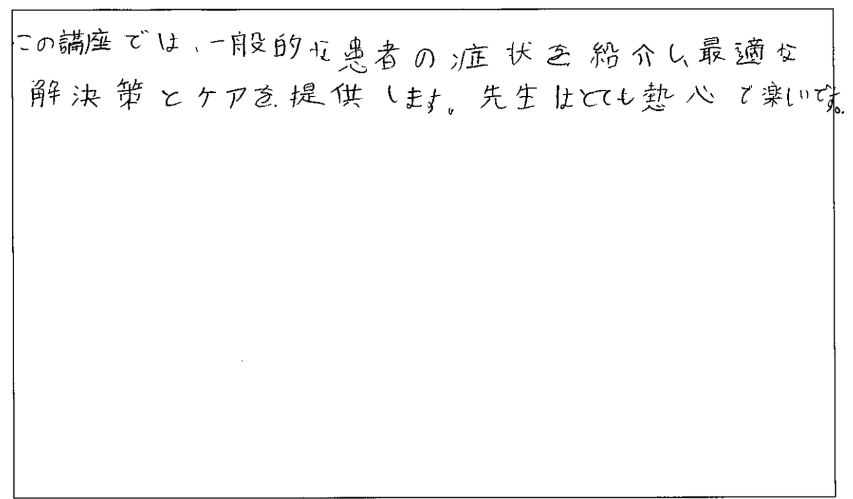 この講座では、一般的な患者の症状を紹介し、最適な
解決策とケアを提供します。先生はとても熱心で楽しいです。